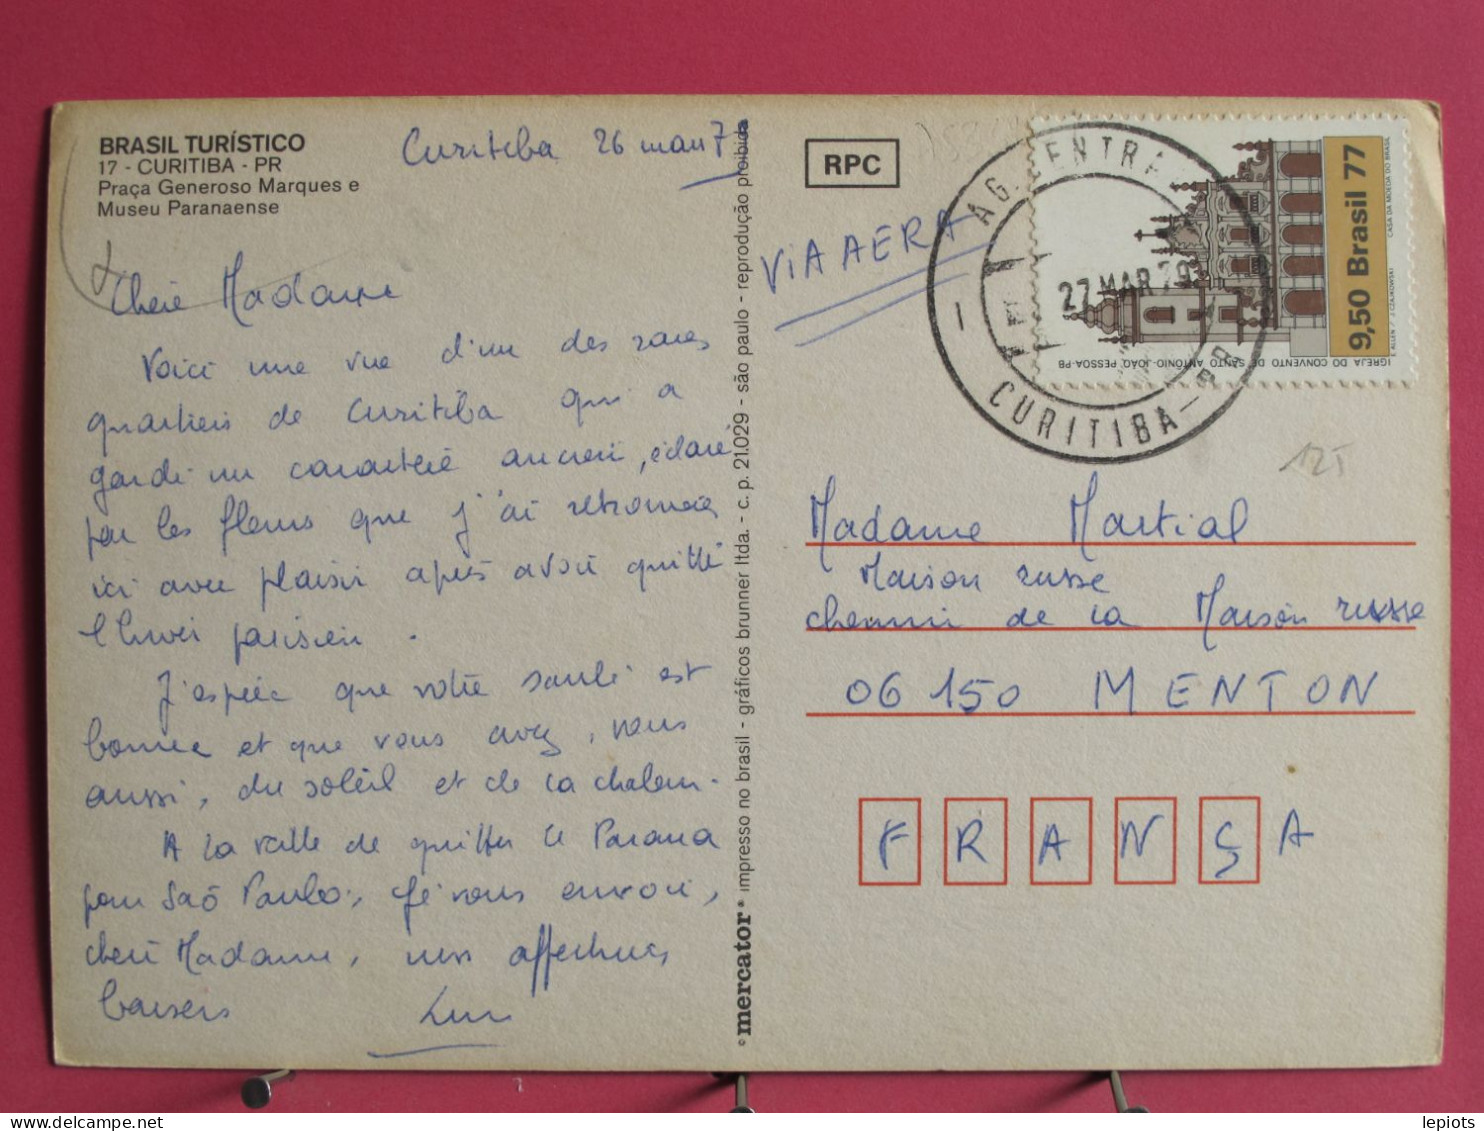 BRASIL TURÍSTICO
17 - CURITIBA - PR
Praça Generoso Marques e
Museu Paranaense
Curitiba 26 mars 7
Chère Madame
Voici une vue d'un des rares
quartiers de Curitiba qui a
gardé un caractère ancien, éclairé
par les fleurs que j'ai retrouvées
ici avec plaisir après avoir quitté
l'hiver parisien.
J'espère que votre santé est
bonne et que vous avez, vous
aussi, du soleil et de la chaleur.
A la veille de quitter le Parana
pour Saõ Paulo, je vous envoie,
chère Madame, mes affectueux
baisers
mercator® impresso no brasil - gráficos brunner ltda. - c. p. 21.029 - são paulo - reprodução proibida
RPC
VIA AERA
AG. CENTRAL
27 MAR 79
CURITIBA - PR
9,50 Brasil 77
IGREJA DO CONVENTO DE SANTO ANTÔNIO-JOÃO PESSOA-PB
CASA DA MOEDA DO BRASIL
125
Madame Martial
Maison russe
chemin de la Maison russe
06150 MENTON
FRANÇA
lepiots